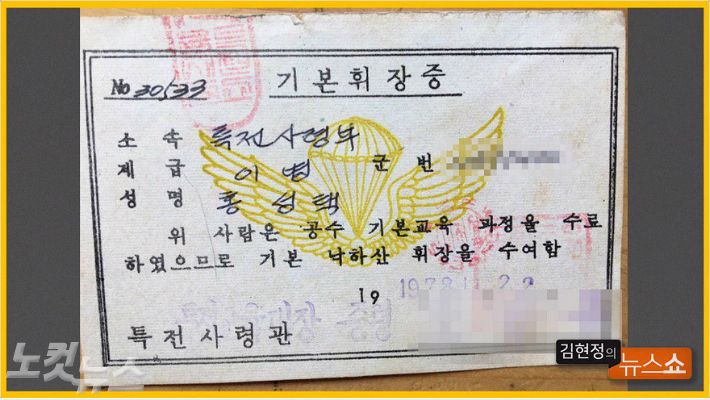 기본휘장증
No 30533
소속 특전사령부
계급 이병 군번
성명 홍성택
위 사람은 공수 기본교육 과정을 수료
하였으므로 기본 낙하산 휘장을 수여함
19 1978.1.22
특전사령관
노컷뉴스
김현정의
뉴스쇼